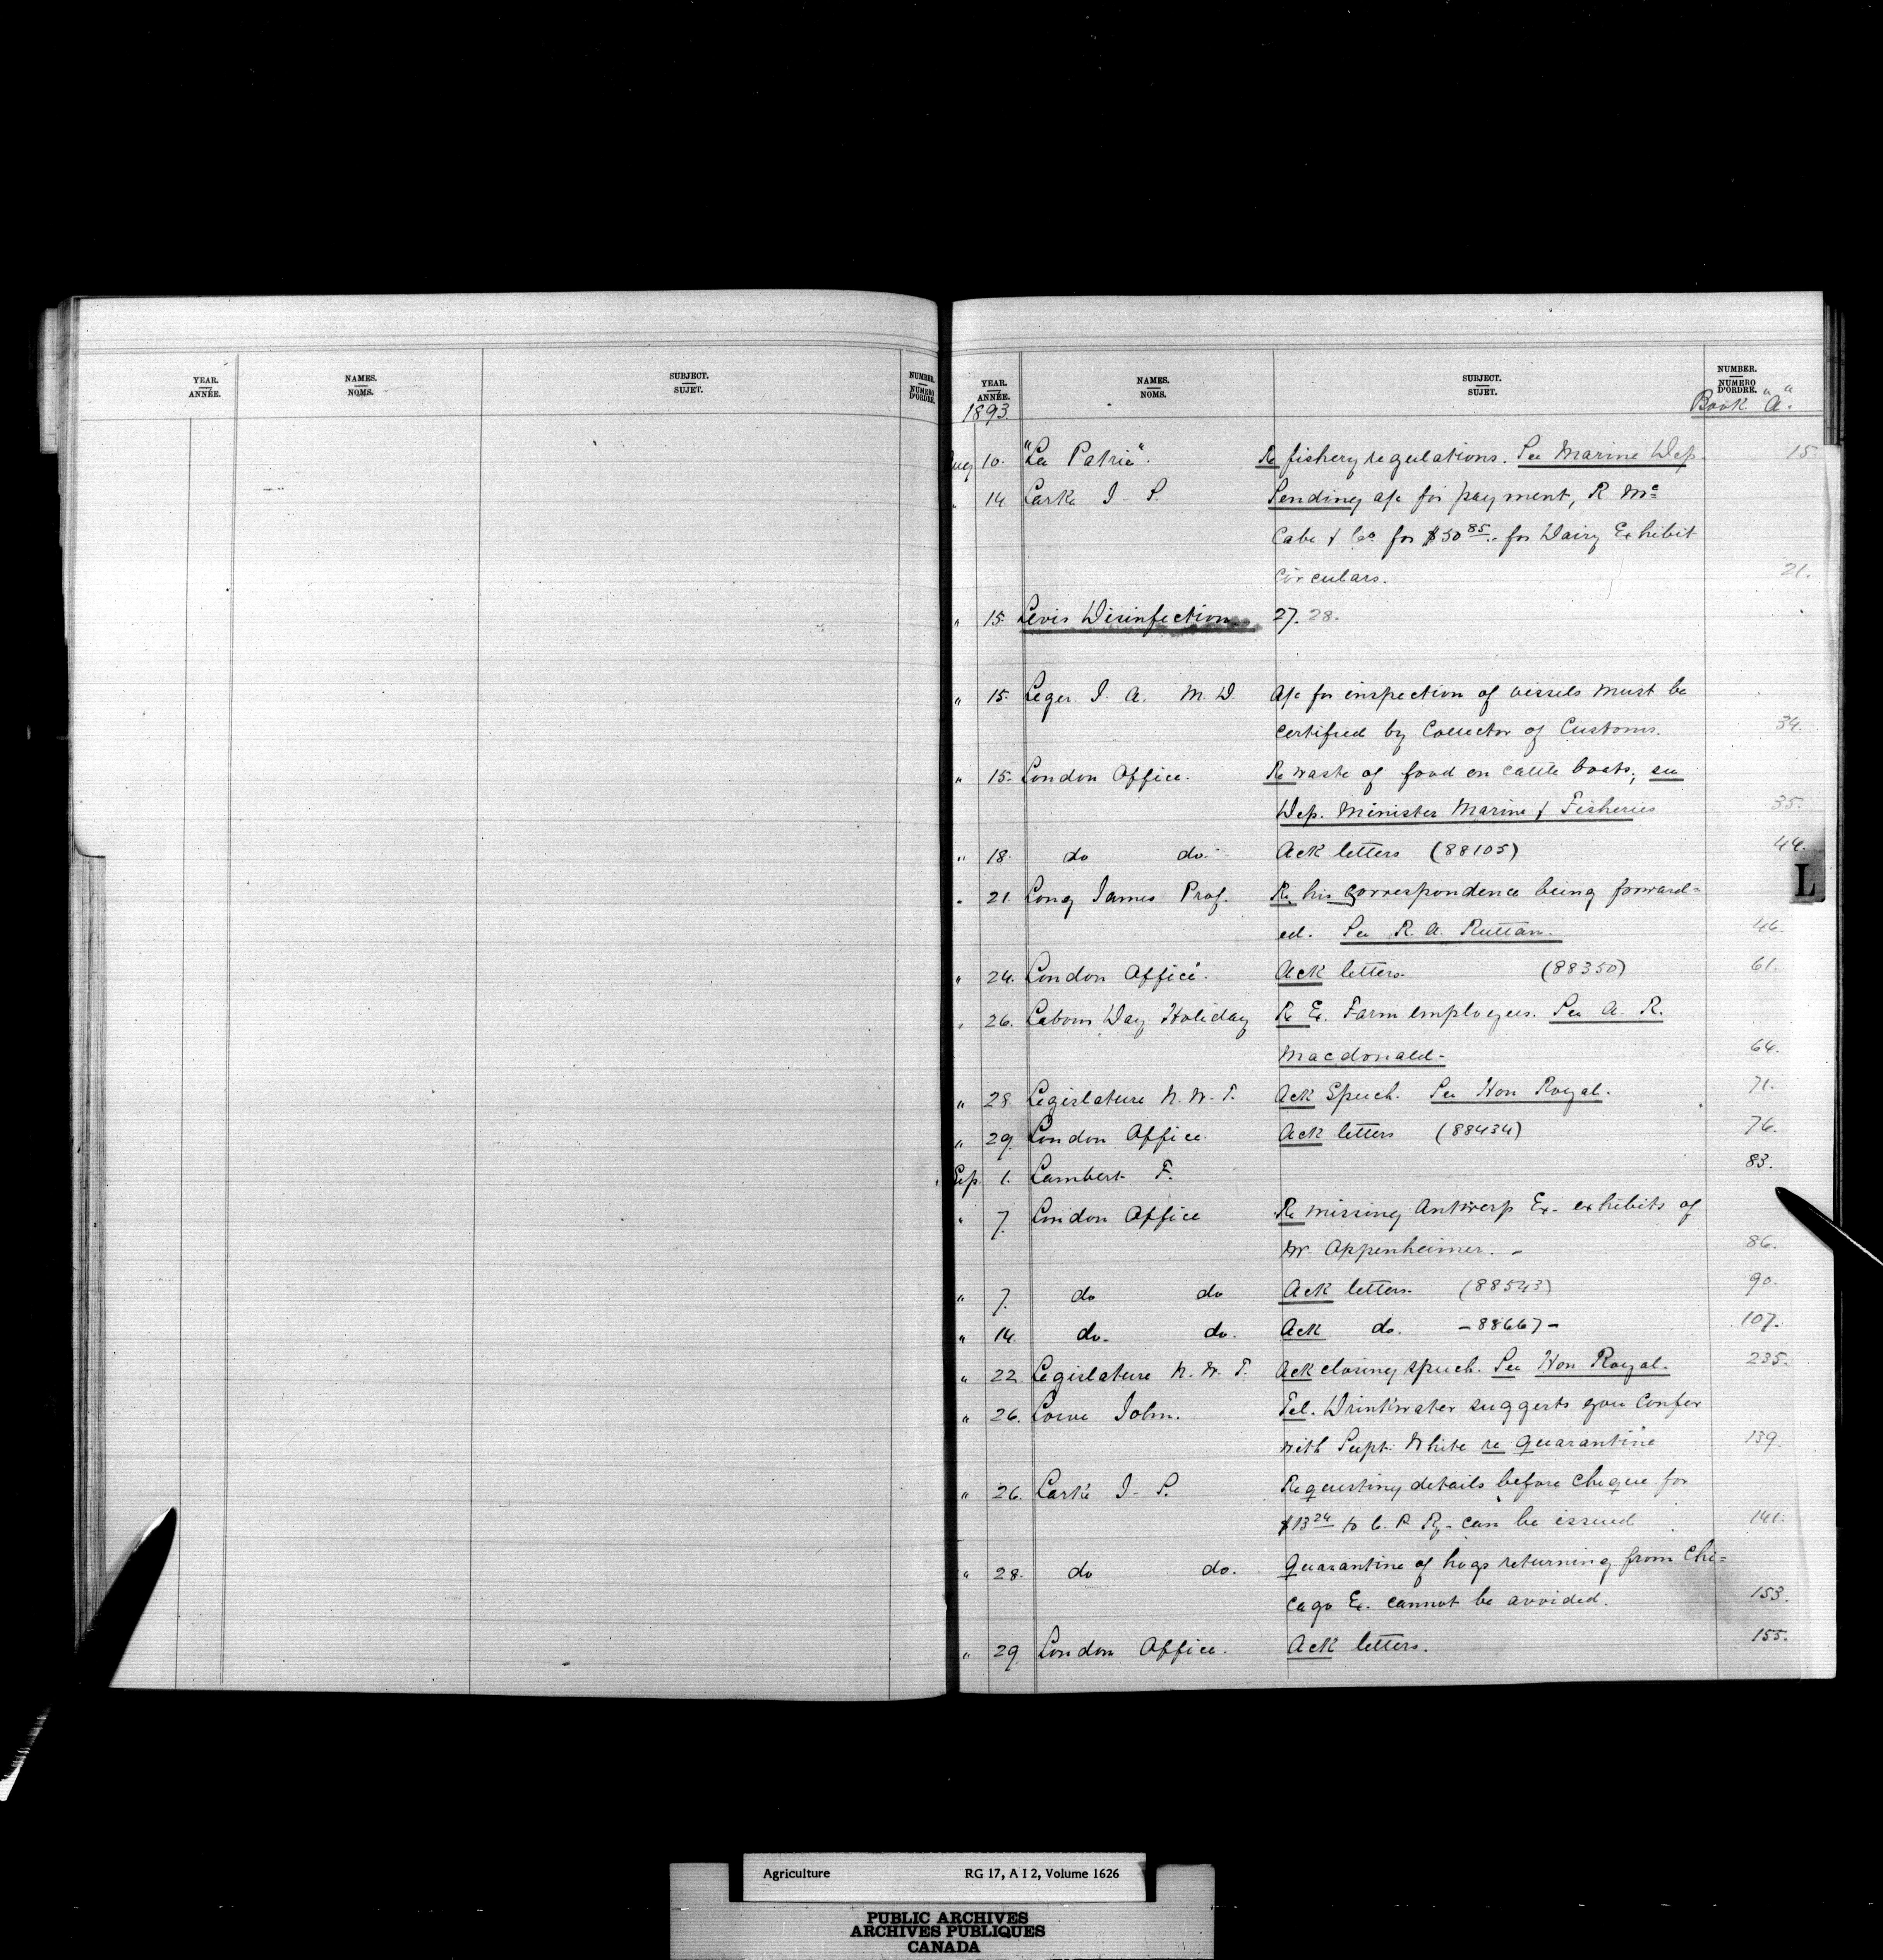 YEAR. NAMES. SUBJECT. NUMBER.
ANNÉE. NOMS. SUJET. NUMERO D'ORDRE.
YEAR. NAMES. SUBJECT. NUMBER.
ANNÉE. NOMS. SUJET. NUMERO D'ORDRE.
1893. Book "A".
Aug 10. "La Patrie". Re fishery regulations. See Marine Dep. 15.
" 14 Larke J. S. Sending a/c for payment, R Mc
Cabe & Co for $50 85 for Dairy Exhibit
circulars. 21.
" 15. Levis Disinfection 27. 28.
" 15. Leger J. A. M. D. A/c for inspection of vessels must be
certified by Collector of Customs. 34.
" 15. London Office. Re waste of food on cattle boats; see
Dep. Minister Marine & Fisheries 35.
" 18. do do. Ack letters (88105) 44.
" 21. Long James Prof. Re his correspondence being forward=
ed. See R. A. Ruttan. 46.
L
" 24. London Office. Ack letters. (88350) 61.
" 26. Labour Day Holiday Re Ex. Farm employees. See A. R.
Macdonald- 64.
" 28 Legislature N. W. T. Ack Speech. See Hon Royal. 71.
" 29. London Office. Ack letters (88434) 76.
Sep 1. Lambert F. 83.
" 7. London Office Re missing Antwerp Ex. exhibits of
Mr. Oppenheimer. - 86.
" 7. do do Ack letters. (88543) 90.
" 14. do. do. Ack do. -88667- 107.
" 22 Legislature N. W. T. Ack closing speech. See Hon Royal. 235.
" 26. Lowe John. Tel. Drinkwater suggests you confer
with Supt. White re Quarantine 139.
" 26. Larke J. S. Requesting details before cheque for
$13 24 to C. P. Ry. can be issued 141.
" 28. do do. Quarantine of hogs returning from Chi=
cago Ex. cannot be avoided. 153.
" 29. London Office. Ack letters. 155.
Agriculture RG 17, A I 2, Volume 1626
PUBLIC ARCHIVES
ARCHIVES PUBLIQUES
CANADA